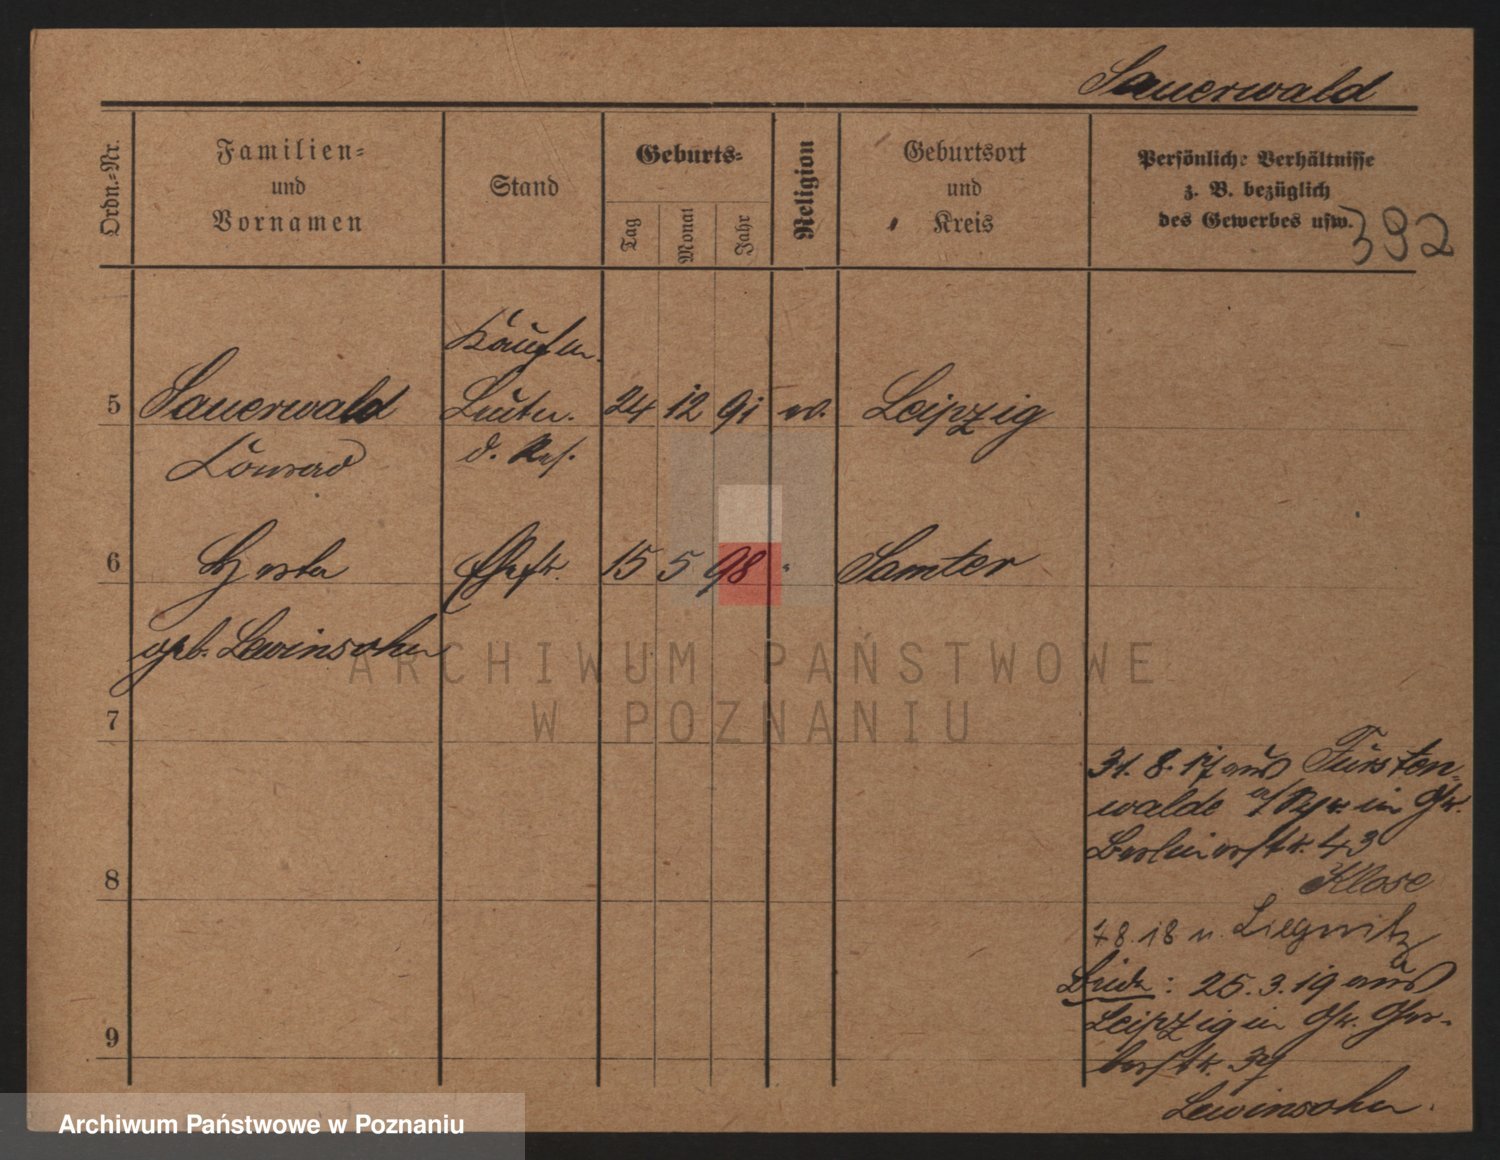 Sauerwald
Ordn.-Nr.
Familien-
und
Vornamen
Stand
Geburts-
Tag
Monat
Jahr
Religion
Geburtsort
und
Kreis
Persönliche Verhältnisse
z. B. bezüglich
des Gewerbes usw.
392
Kaufm.
5 Sauerwald Leutn. 24 12 91 Leipzig
Conrad d. Res.
6 Herta Ehefr. 15 5 98 " Samter
geb. Lewinsohn
7
31. 8. 17 aus Fürsten-
walde a/ in Gr.
Berlinerstr. 43
8
Klose
8. 18 n. Liegnitz
Beide: 25. 3. 19 aus
Leipzig in Gr. Ger-
9
berstr. 39
Lewinsohn.
ARCHIWUM PAŃSTWOWE
W POZNANIU
Archiwum Państwowe w Poznaniu